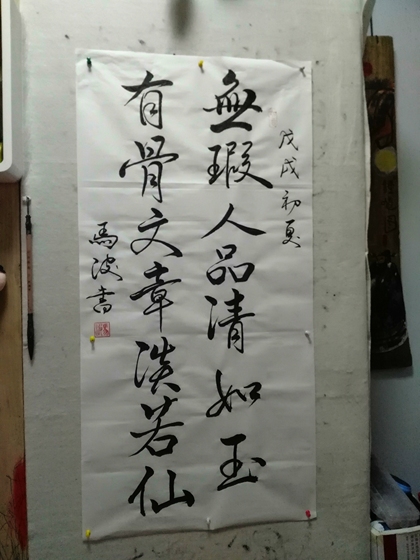 戊戌初夏
無瑕人品清如玉
有骨文章淡若仙
馬波書